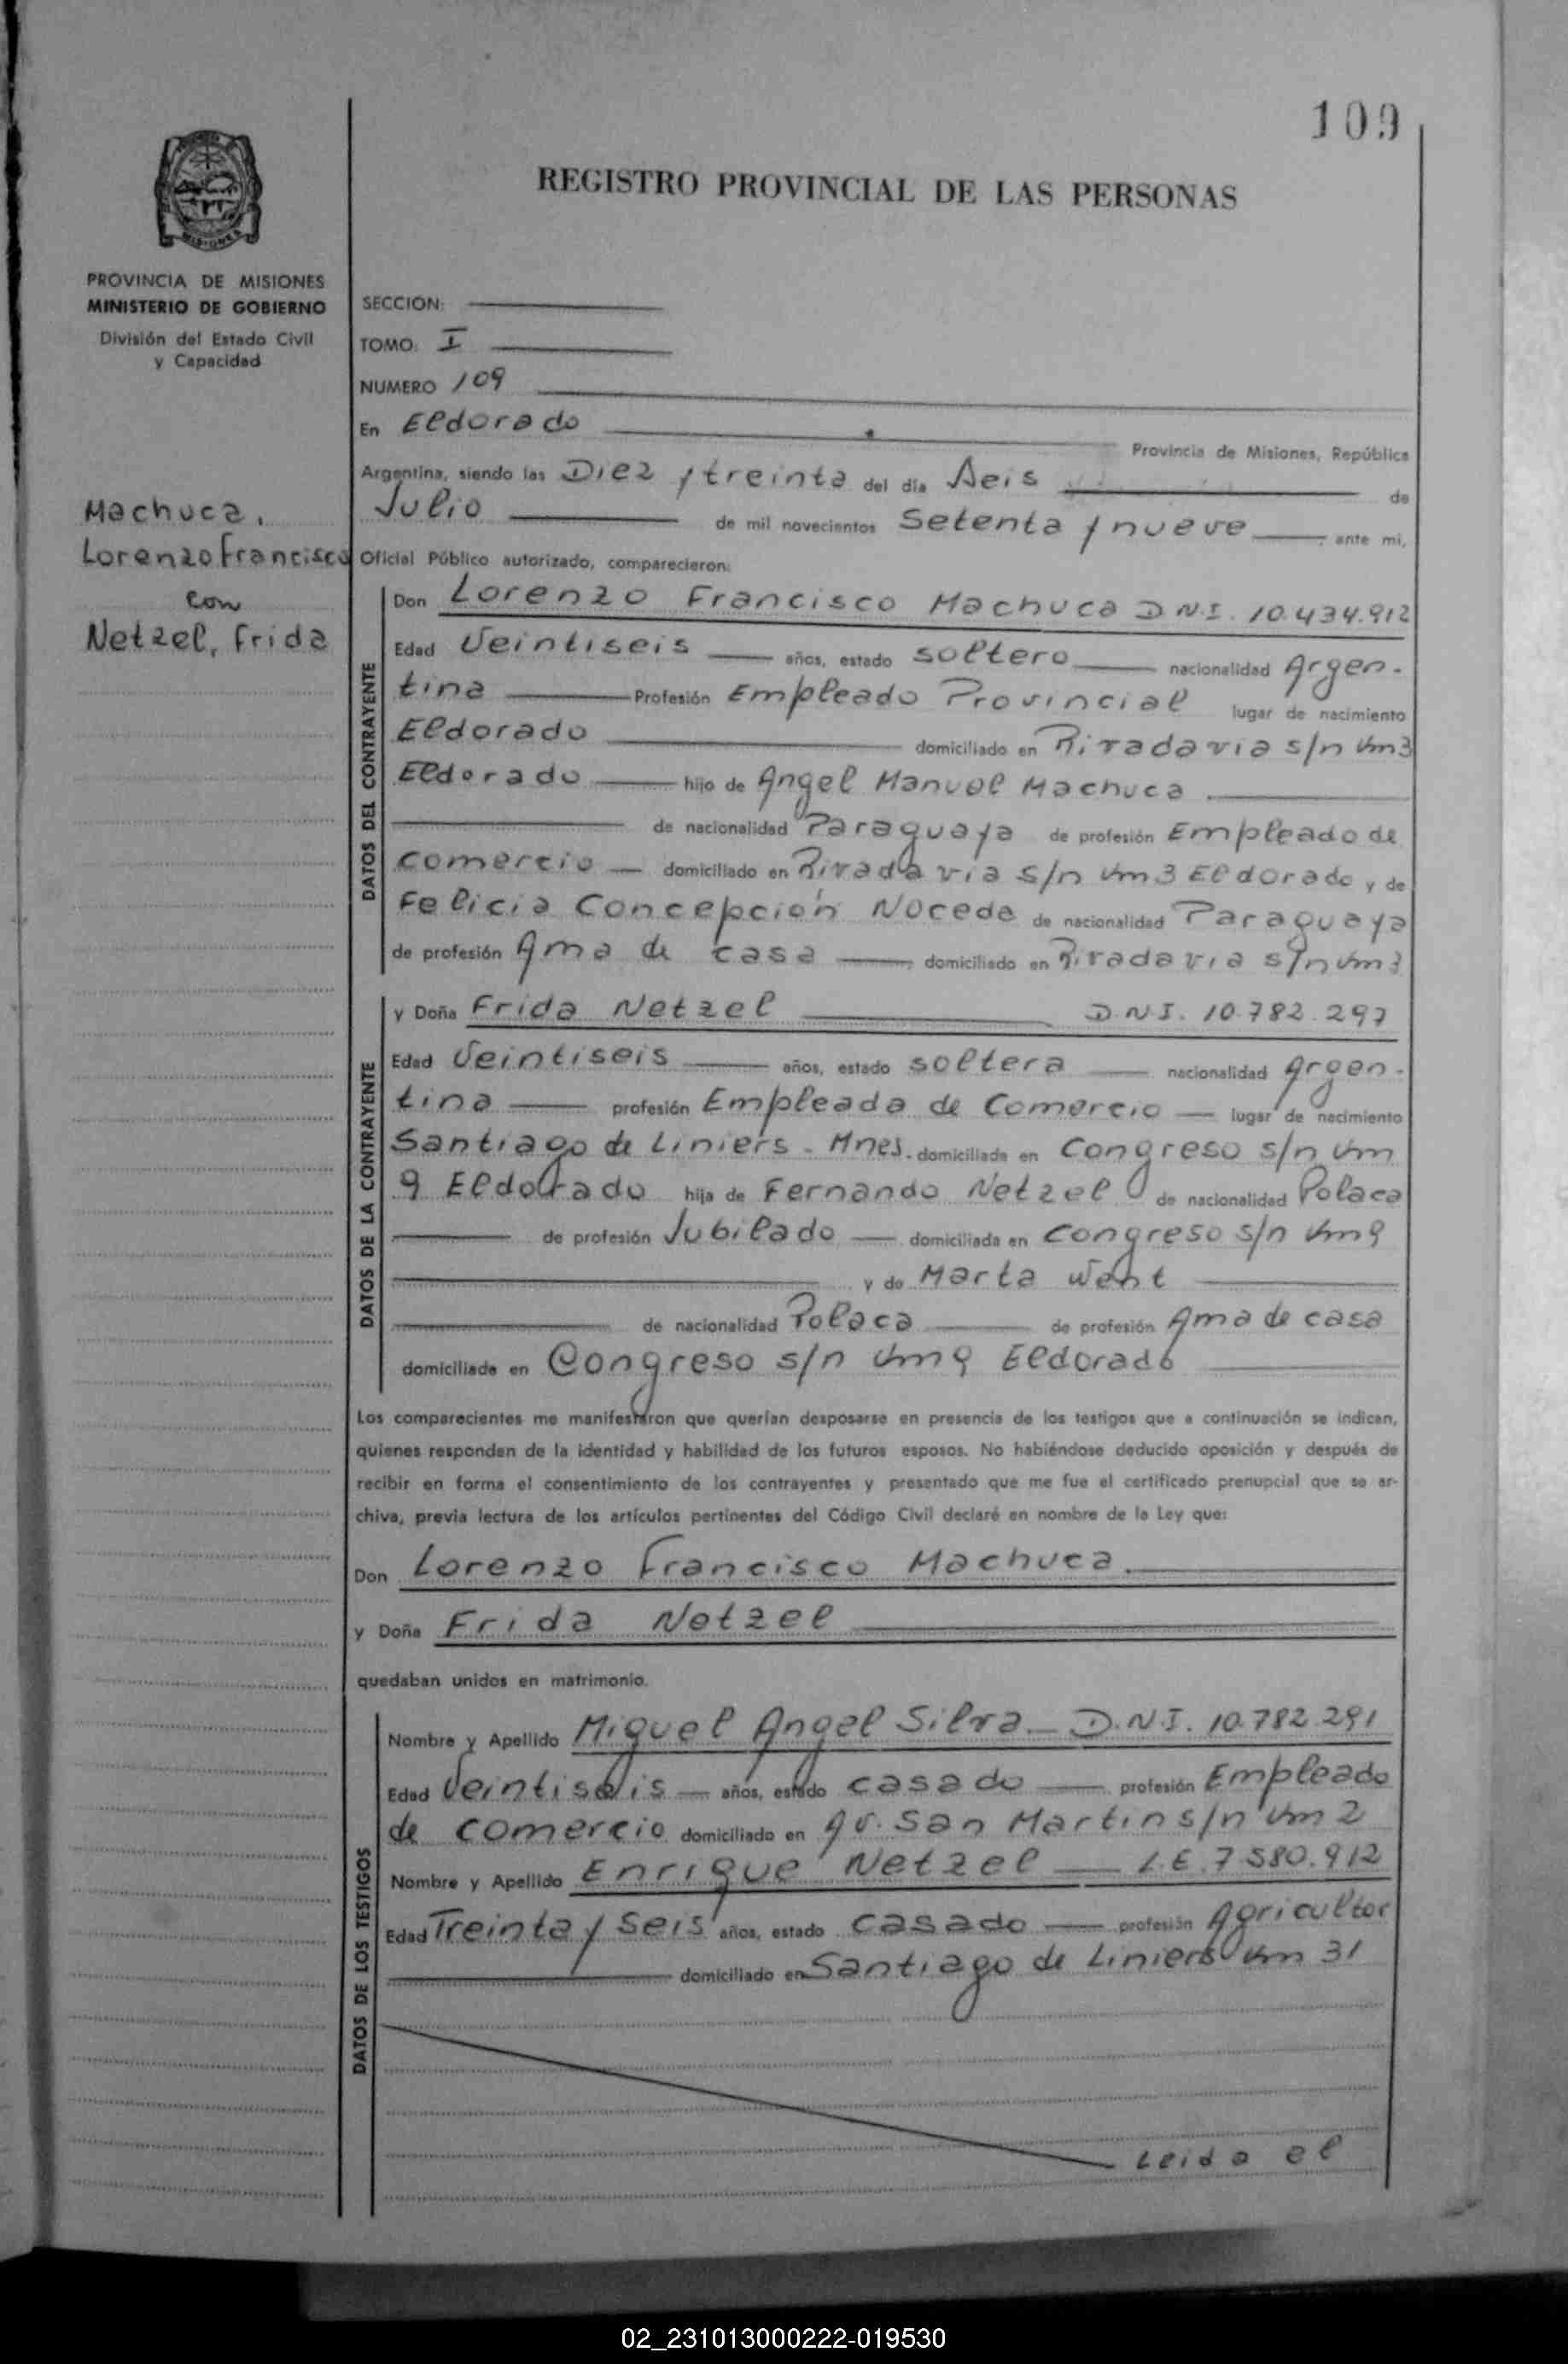 109
REGISTRO PROVINCIAL DE LAS PERSONAS
MISIONES
PROVINCIA DE MISIONES
MINISTERIO DE GOBIERNO
División del Estado Civil
y Capacidad
Machuca,
Lorenzo Francisco
con
Netzel, Frida
SECCION:
TOMO: I
NUMERO 109
En Eldorado Provincia de Misiones, República
Argentina, siendo las Diez y treinta del día Seis de
Julio de mil novecientos Setenta y nueve ante mi,
Oficial Público autorizado, comparecieron:
DATOS DEL CONTRAYENTE
Don Lorenzo Francisco Machuca D.N.I. 10.434.912
Edad Veintiseis años, estado soltero nacionalidad Argen-
tina Profesión Empleado Provincial lugar de nacimiento
Eldorado domiciliado en Rivadavia s/n km3
Eldorado hijo de Angel Manuel Machuca
de nacionalidad Paraguaya de profesión Empleado de
comercio domiciliado en Rivadavia s/n km3 Eldorado y de
Felicia Concepción Noceda de nacionalidad Paraguaya
de profesión Ama de casa domiciliado en Rivadavia s/n km3
DATOS DE LA CONTRAYENTE
y Doña Frida Netzel D.N.I. 10.782.297
Edad Veintiseis años, estado soltera nacionalidad Argen-
tina profesión Empleada de Comercio lugar de nacimiento
Santiago de Liniers - Mnes. domiciliada en Congreso s/n km
9 Eldorado hija de Fernando Netzel de nacionalidad Polaca
de profesión Jubilado domiciliada en Congreso s/n km9
y de Marta Went
de nacionalidad Polaca de profesión Ama de casa
domiciliada en Congreso s/n km9 Eldorado
Los comparecientes me manifestaron que querían desposarse en presencia de los testigos que a continuación se indican,
quienes responden de la identidad y habilidad de los futuros esposos. No habiéndose deducido oposición y después de
recibir en forma el consentimiento de los contrayentes y presentado que me fue el certificado prenupcial que se ar-
chiva, previa lectura de los artículos pertinentes del Código Civil declaré en nombre de la Ley que:
Don Lorenzo Francisco Machuca
y Doña Frida Netzel
quedaban unidos en matrimonio.
DATOS DE LOS TESTIGOS
Nombre y Apellido Miguel Angel Silva D.N.I. 10.782.291
Edad Veintiseis años, estado casado profesión Empleado
de comercio domiciliado en Av. San Martin s/n km 2
Nombre y Apellido Enrique Netzel L.E. 7.580.912
Edad Treinta y seis años, estado casado profesión Agricultor
domiciliado en Santiago de Liniers km 31
Leida el
02_231013000222-019530